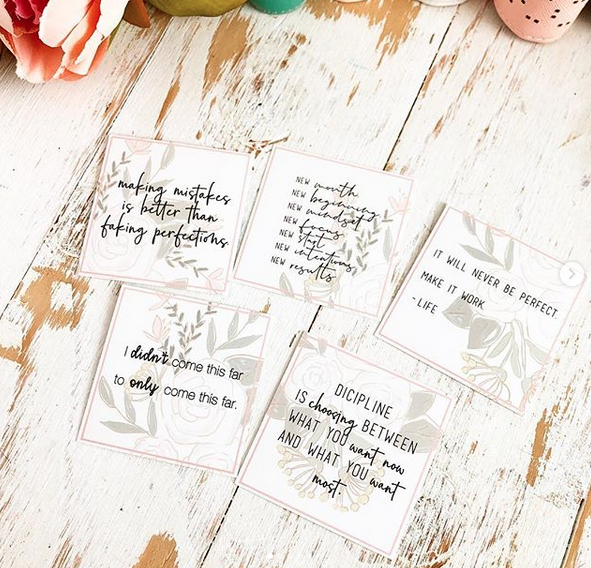 making mistakes
is better than
faking perfections.
NEW month
NEW beginning
NEW mindset
NEW focus
NEW start
NEW intentions
NEW results
IT WILL NEVER BE PERFECT.
MAKE IT WORK.
- LIFE
I didn't come this far
to only come this far.
DICIPLINE
IS choosing BETWEEN
WHAT YOU want now
AND WHAT YOU want
most.